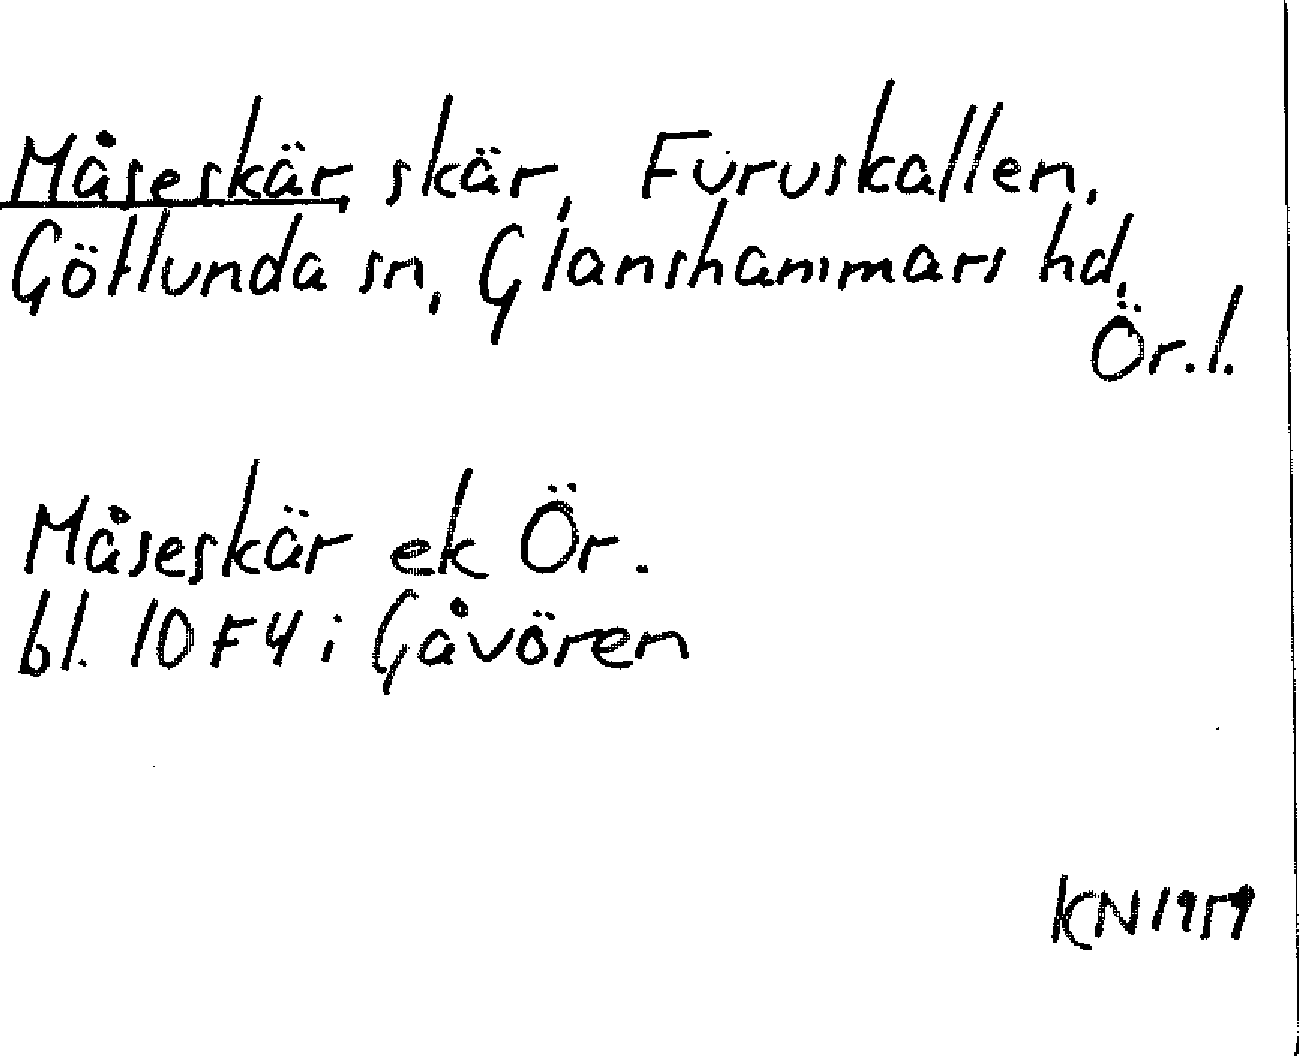 Måseskär, skär, Furuskallen,
Götlunda sn, Glanshammars hd,
Ör.l.
Måseskär ek Ör.
bl. 10F4i Gåvören
KN1959